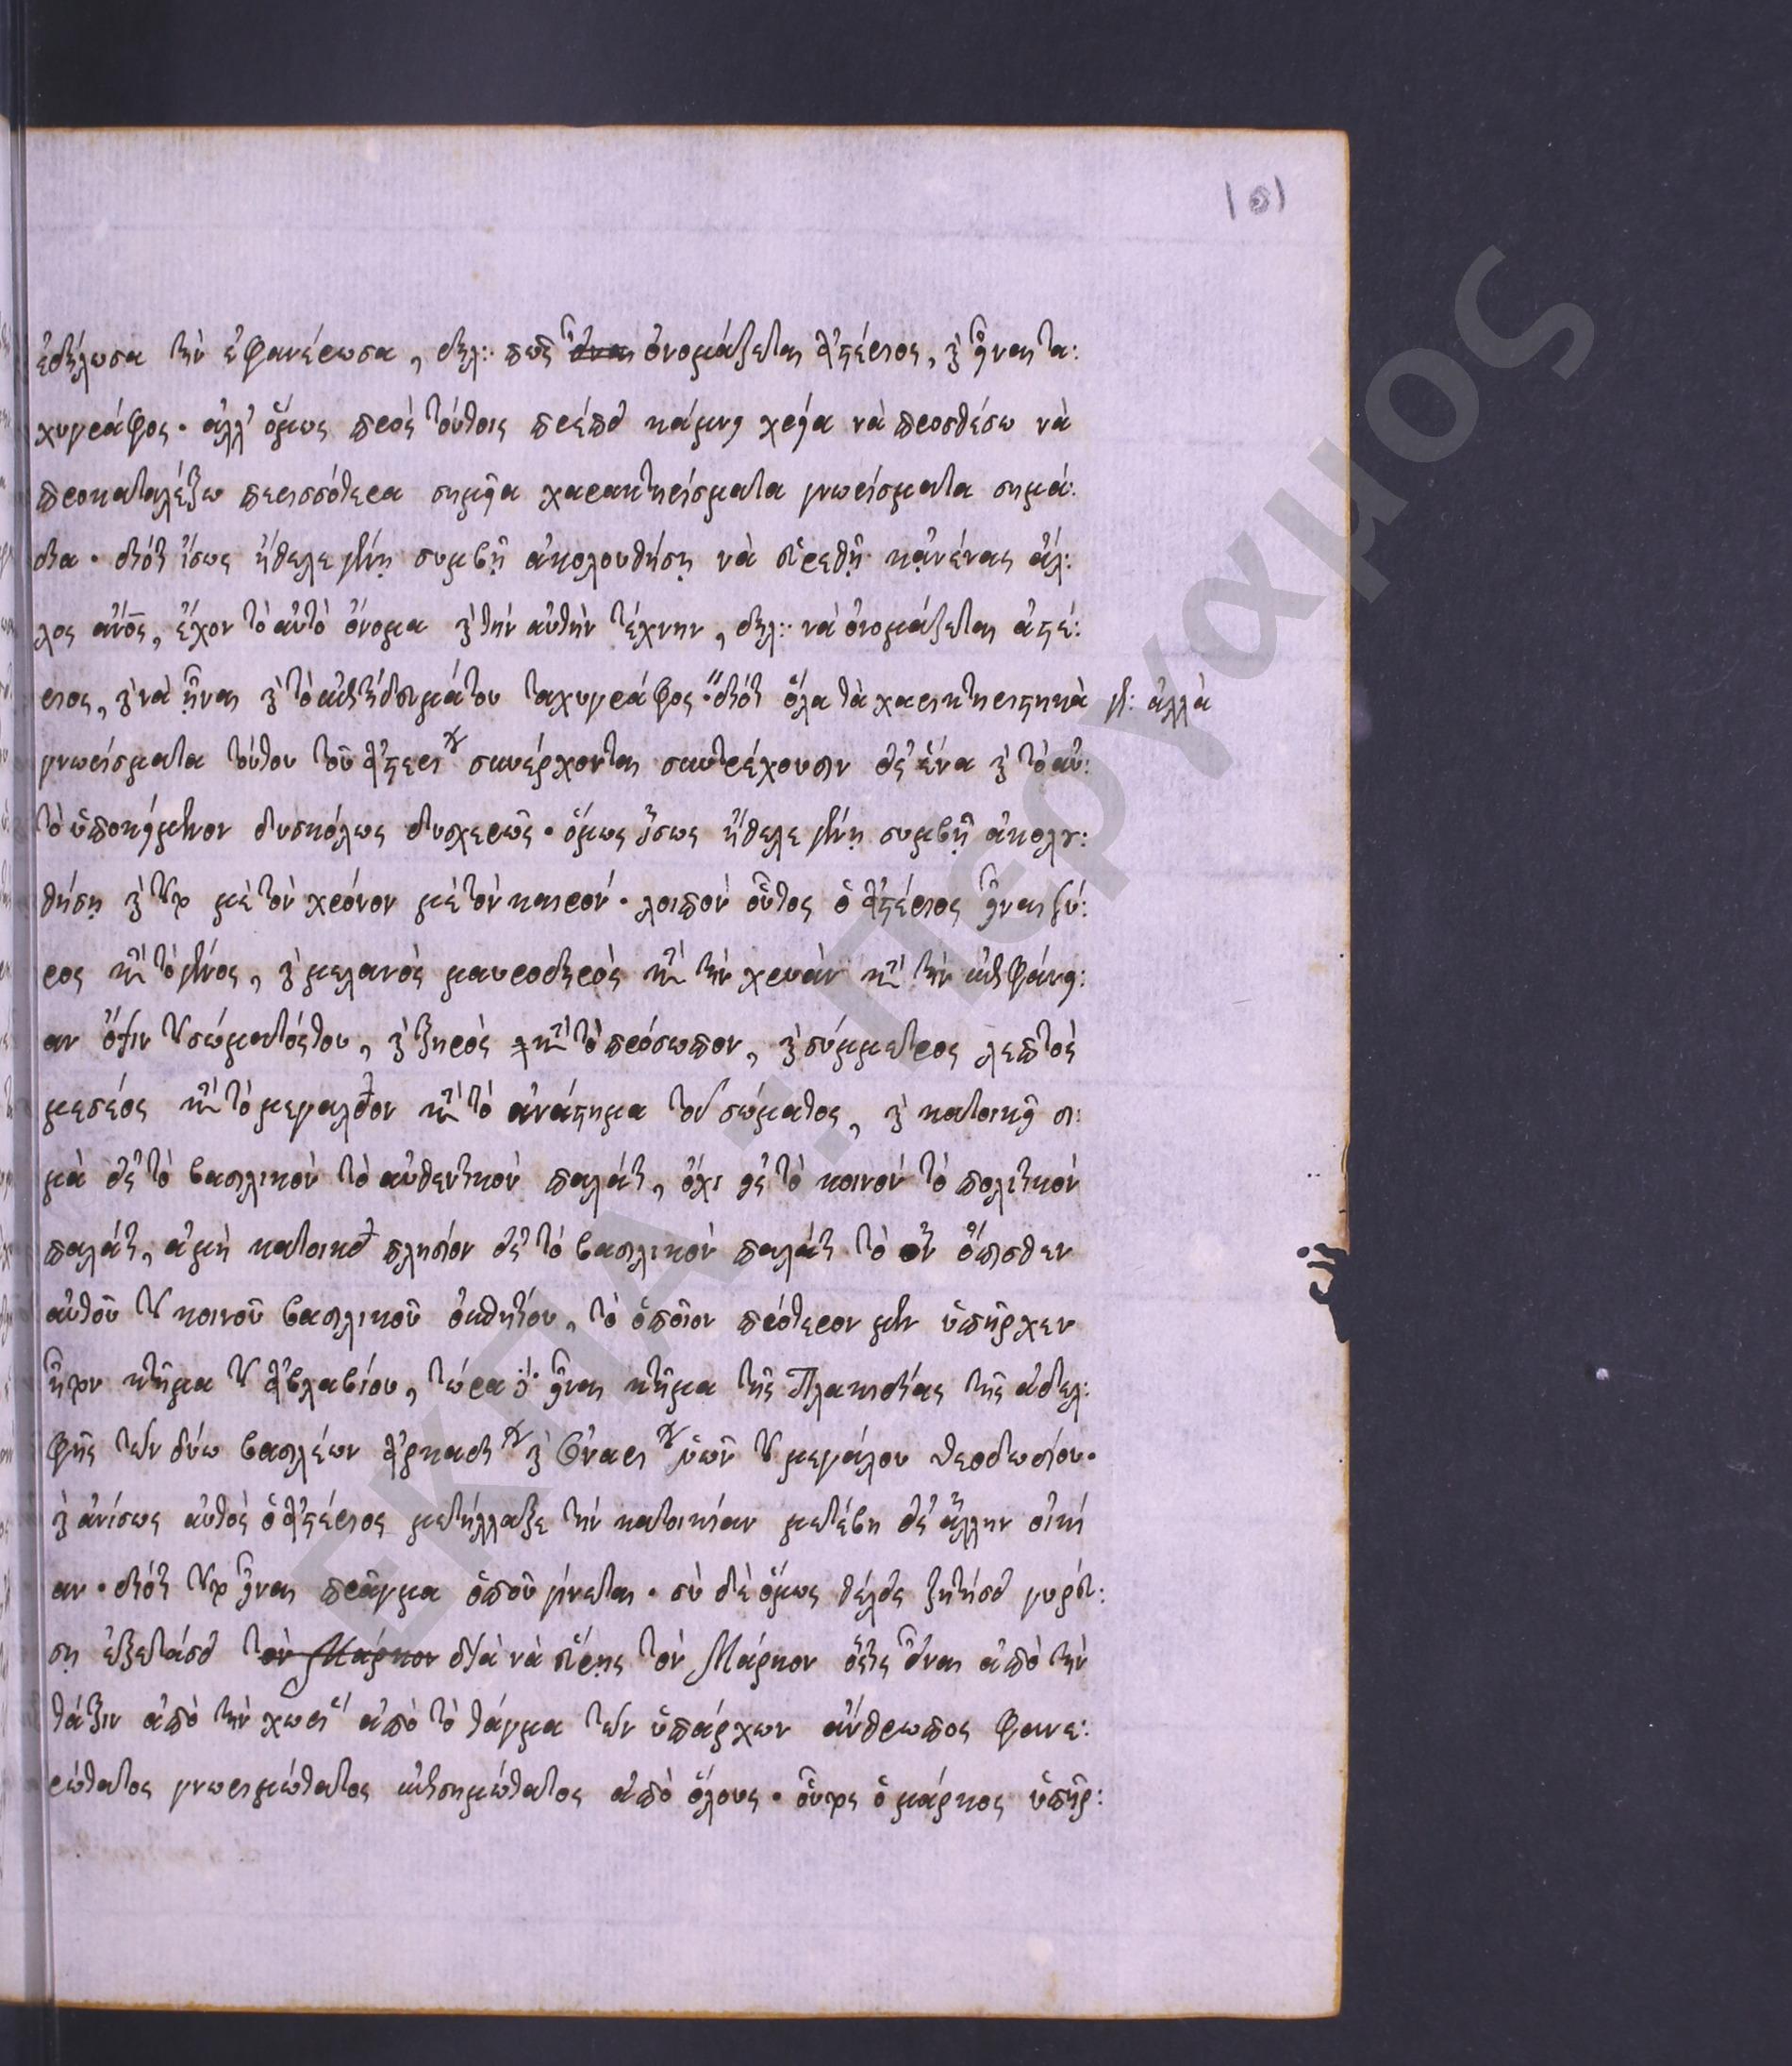 101
ἐδήλωσα τὴν ἐφανέρωσα, δηλ: πῶς εἶναι ὀνομάζεται ἀστέριος, καὶ εἶναι τα:
χυγράφος· ἀλλ' ὅμως πρὸς τούτοις πρέπει κάμνει χρεία νὰ προσθέσω νὰ
προκαταλέξω περισσότερα σημεῖα χαρακτηρίσματα γνωρίσματα σημά:
δια· διότι ἴσως ἤθελε γένῃ συμβῇ ἀκολουθήσῃ νὰ εὑρεθῇ κᾀνένας ἄλ:
λος ἄνος, ἔχον τὸ αὐτὸ ὄνομα καὶ τὴν αὐτὴν τέχνην, δηλ: νὰ ὀνομάζεται ἀστέ:
ριος, καὶ νὰ ἦναι καὶ τὸ ἐπιτήδευμάτου ταχυγράφος·" διότι ὅλα τὰ χαρακτηριστικὰ γρ: ἀλλὰ
γνωρίσματα τούτου τοῦ ἀστερίου συνέρχονται συντρέχουσιν εἰς ἕνα καὶ τὸ αὐ:
τὸ ὑποκείμενον δυσκόλως δυσχερῶς· ὅμως ἴσως ἤθελε γένῃ συμβῇ ἀκολου:
θήσῃ καὶ τοῦτο μὲ τὸν χρόνον μὲ τὸν καιρόν· λοιπὸν οὗτος ὁ ἀστέριος εἶναι σύ:
ρος κατὰ τὸ γένος, καὶ μελανὸς μαυροδερὸς κατὰ τὴν χροιὰν κατὰ τὴν ἐπιφάνει:
αν ὄψιν τοῦ σώματόςτου, καὶ ξηρὸς κατὰ τὸ πρόσωπον, καὶ σύμμετρος λεπτὸς
μεσέος κατὰ τὸ μεγαλεῖον κατὰ τὸ ἀνάστημα τοῦ σώματος, καὶ κατοικεῖ σι:
μὰ εἰς τὸ βασιλικὸν τὸ αὐθεντικὸν παλάτι, ὄχι εἰς τὸ κοινὸν τὸ πολιτικὸν
παλάτι, ἀμὴ κατοικεῖ πλησίον εἰς τὸ βασιλικὸν παλάτι τὸ ὂν ὄπισθεν
αὐτοῦ τοῦ κοινοῦ βασιλικοῦ ὁσπητίου, τὸ ὁποῖον πρότερον μὲν ὑπῆρχεν
ἦτον κτῆμα τοῦ ἀβλαβίου, τώρα δὲ εἶναι κτῆμα τῆς Πλακιδίας τῆς ἀδελ:
φῆς τῶν δύω βασιλέων ἀρκαδίου καὶ ὀναρίου υἱῶν τοῦ μεγάλου θεοδωσίου·
καὶ ἀνίσως αὐτὸς ὁ ἀστέριος μετήλλαξε τὴν κατοικίαν μετέβη εἰς ἄλλην οἰκί
αν· διότι τοῦτο εἶναι πρᾶγμα ὁποῦ γίνεται· σὺ δὲ ὅμως θέλεις ζητήσει γυρεύ:
σῃ ἐξετάσει τὸν Μάρκον διὰ νὰ εὕρῃς τὸν Μάρκον ὅστις εἶναι ἀπὸ τὴν
τάξιν ἀπὸ τὴν χωρίαν ἀπὸ τὸ τάγμα τῶν ὑπάρχων ἄνθρωπος φανε:
ρώτατος γνωριμώτατος ἐπισημώτατος ἀπὸ ὅλους· οὗτος ὁ μάρκος ὑπῆρ:
ΕΚΠΑ::Πέργαμος